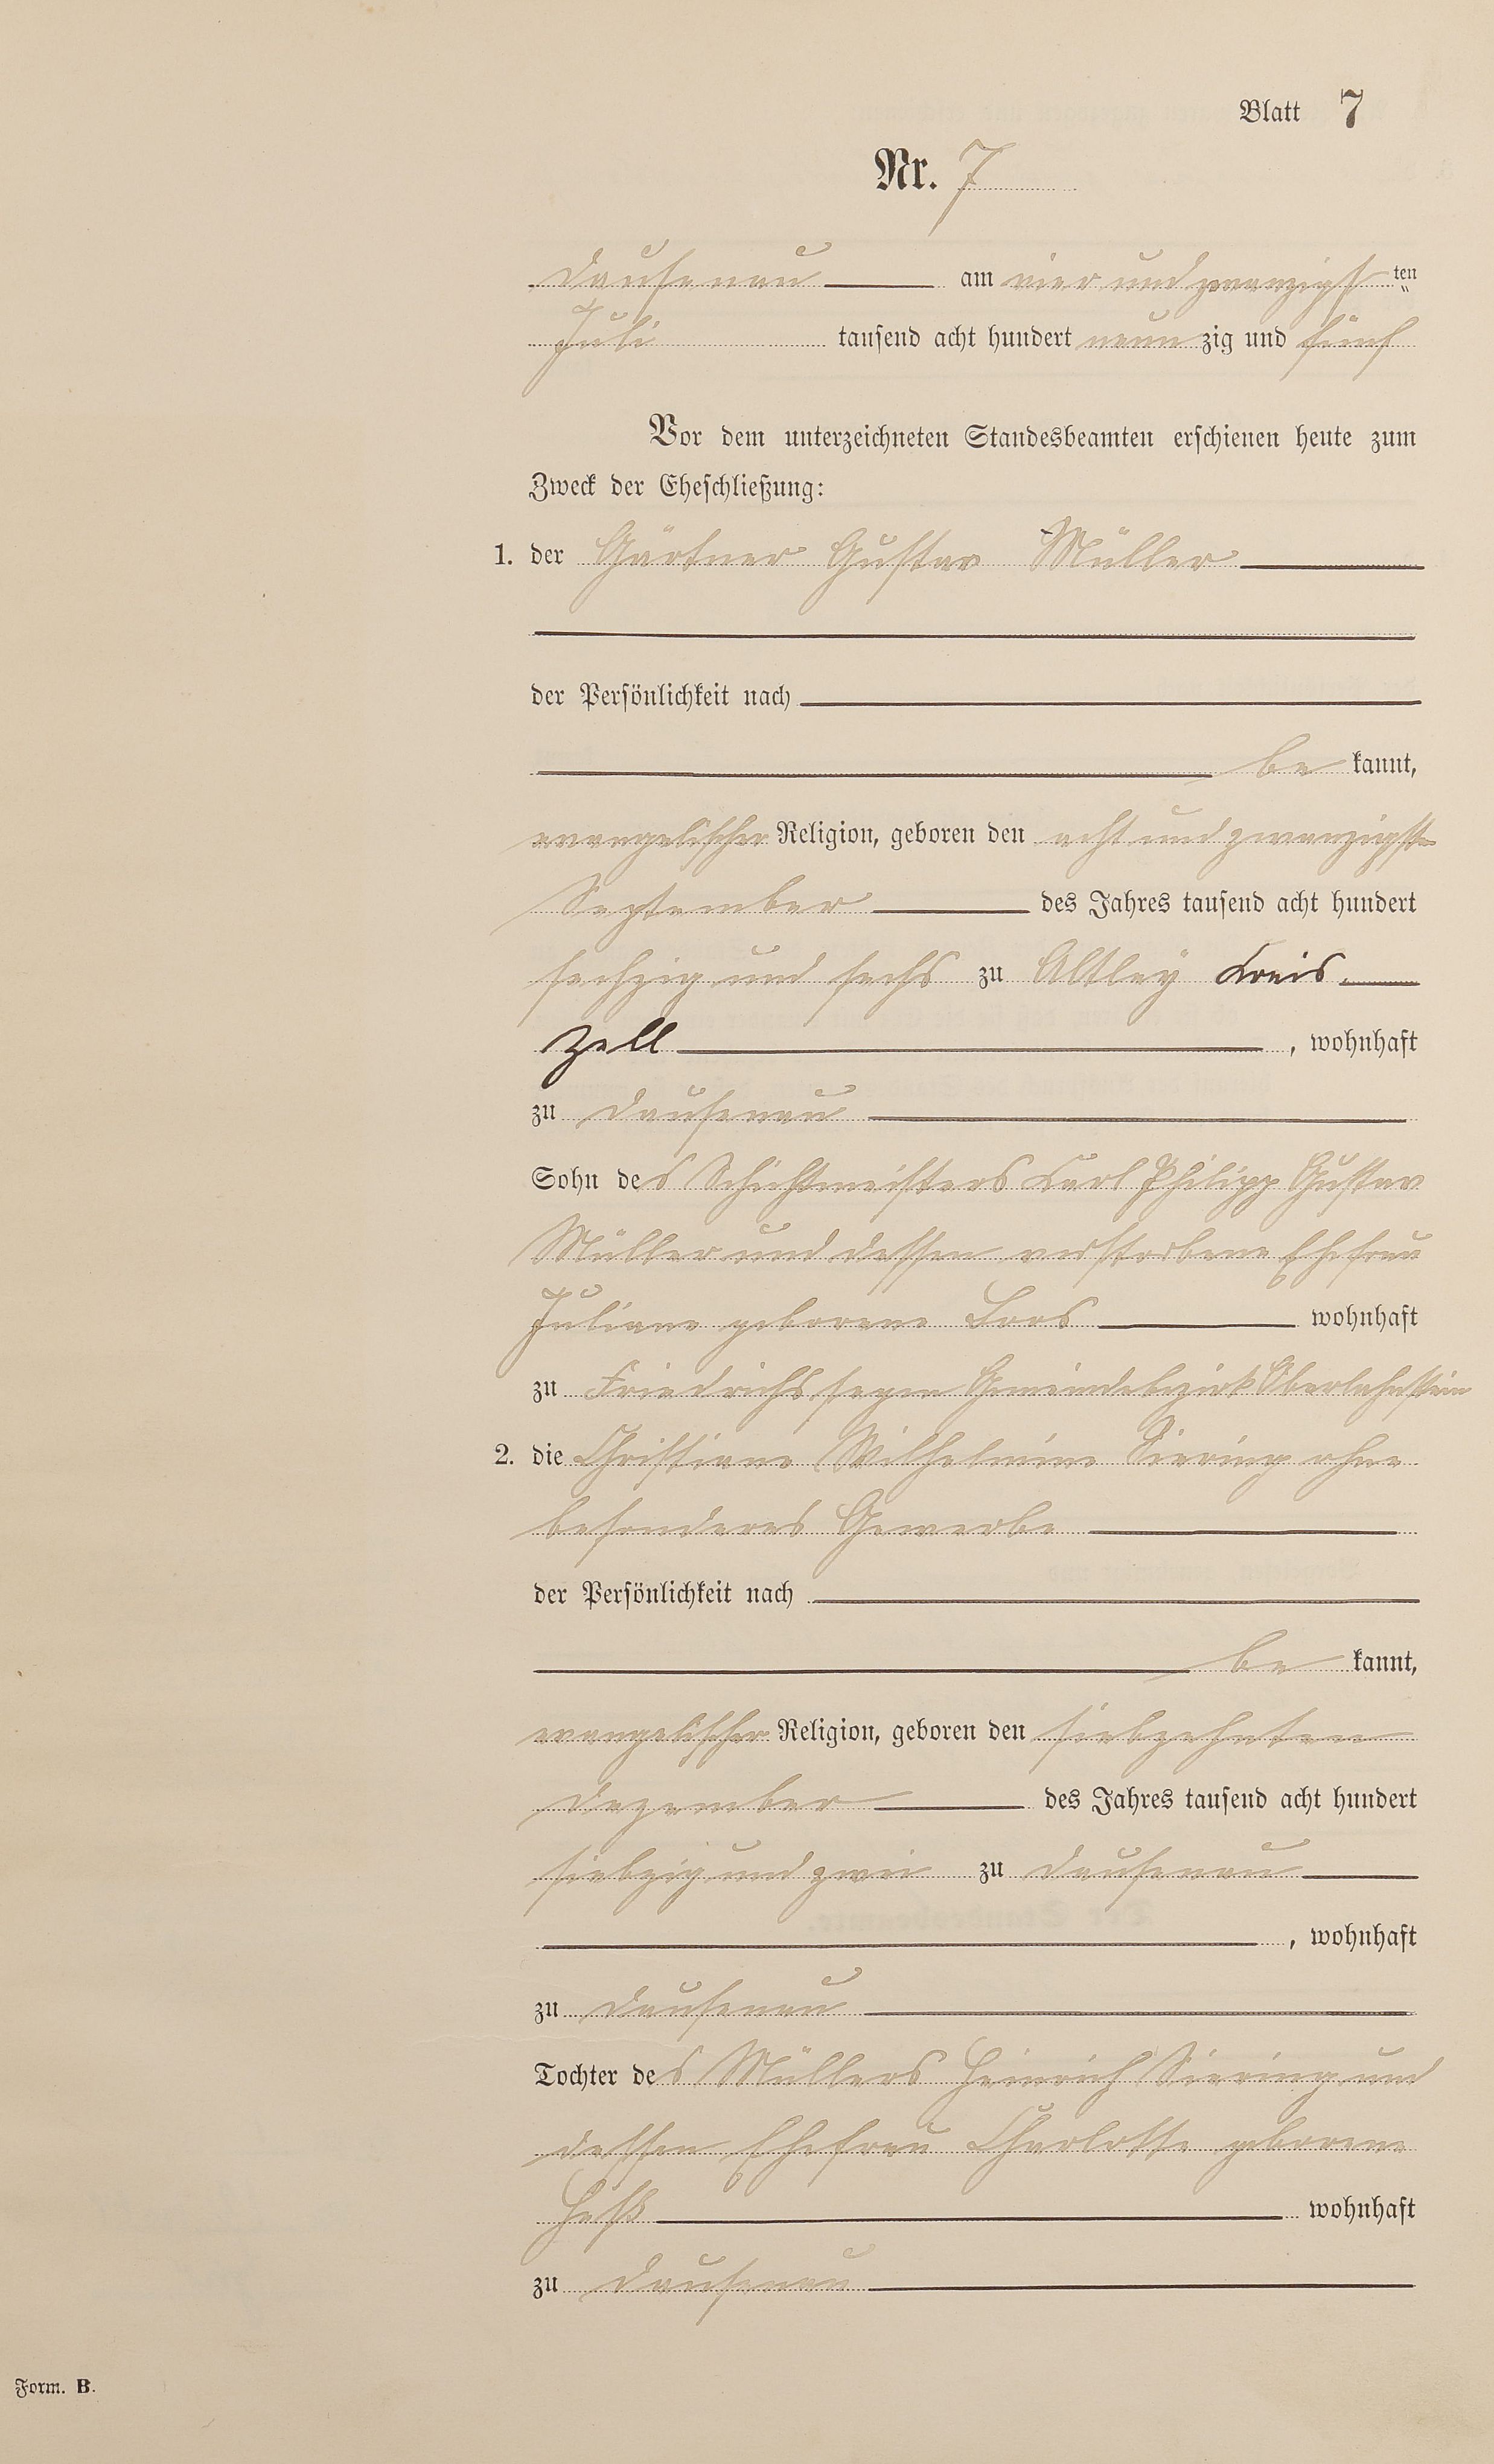 Blatt 7
Nr. 7
Dausenau am vier und zwanzigst ten
Juli tausend acht hundert neun zig und fünf
Vor dem unterzeichneten Standesbeamten erschienen heute zum
Zweck der Eheschließung:
1. der Gärtner Gustav Müller
der Persönlichkeit nach
be kannt,
evangelischer Religion, geboren den acht und zwanzigsten
September des Jahres tausend acht hundert
sechzig und sechs zu Altley Kreis
Zell , wohnhaft
zu Dausenau
Sohn des Schichtmeisters Karl Philipp Gustav
Müller und dessen verstorbene Ehefrau
Juliane geborene Loos wohnhaft
zu Friedrichssegen Gemeindebezirk Oberlahnstein
2. die Christiane Wilhelmine Siering ohne
besonderes Gewerbe
der Persönlichkeit nach
be kannt,
evangelischer Religion, geboren den siebzehnten
Dezember des Jahres tausend acht hundert
siebzig und zwei zu Dausenau
, wohnhaft
zu Dausenau
Tochter des Müllers Heinrich Siering und
dessen Ehefrau Charlotte geborene
Heß wohnhaft
zu Dausenau
Form. B.